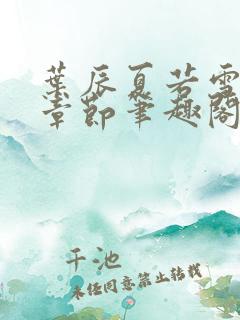 葉辰夏若雪
章節筆趣閣
千池
未经同意禁止转载